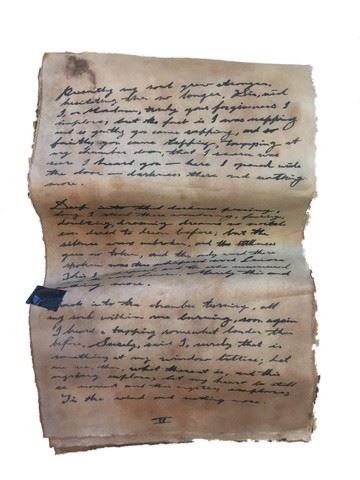 Presently my soul grew stronger,
hesitating then no longer, Sir, said
I, or Madam, truly your forgiveness I
implore, but the fact is I was napping
and so gently you came rapping, and so
faintly you came tapping, tapping at
my chamber door, that I scarce was
sure I heard you — here I opened wide
the door — darkness there and nothing
more.
Deep into that darkness peering,
long I stood there wondering, fearing,
doubting, dreaming dreams no mortals
ever dared to dream before; but the
silence was unbroken, and the stillness
gave no token, and the only word there
spoken was the whispered Lenore
This I
merely this and
more.
Back into the chamber turning, all
my soul within me burning, soon again
I heard a tapping somewhat louder than
before. Surely, said I, surely that is
something at my window lattice; Let
me see, then, what thereat is, and this
mystery explore, let my heart be still
a moment and this mystery explore,
Tis the wind and nothing more.
II